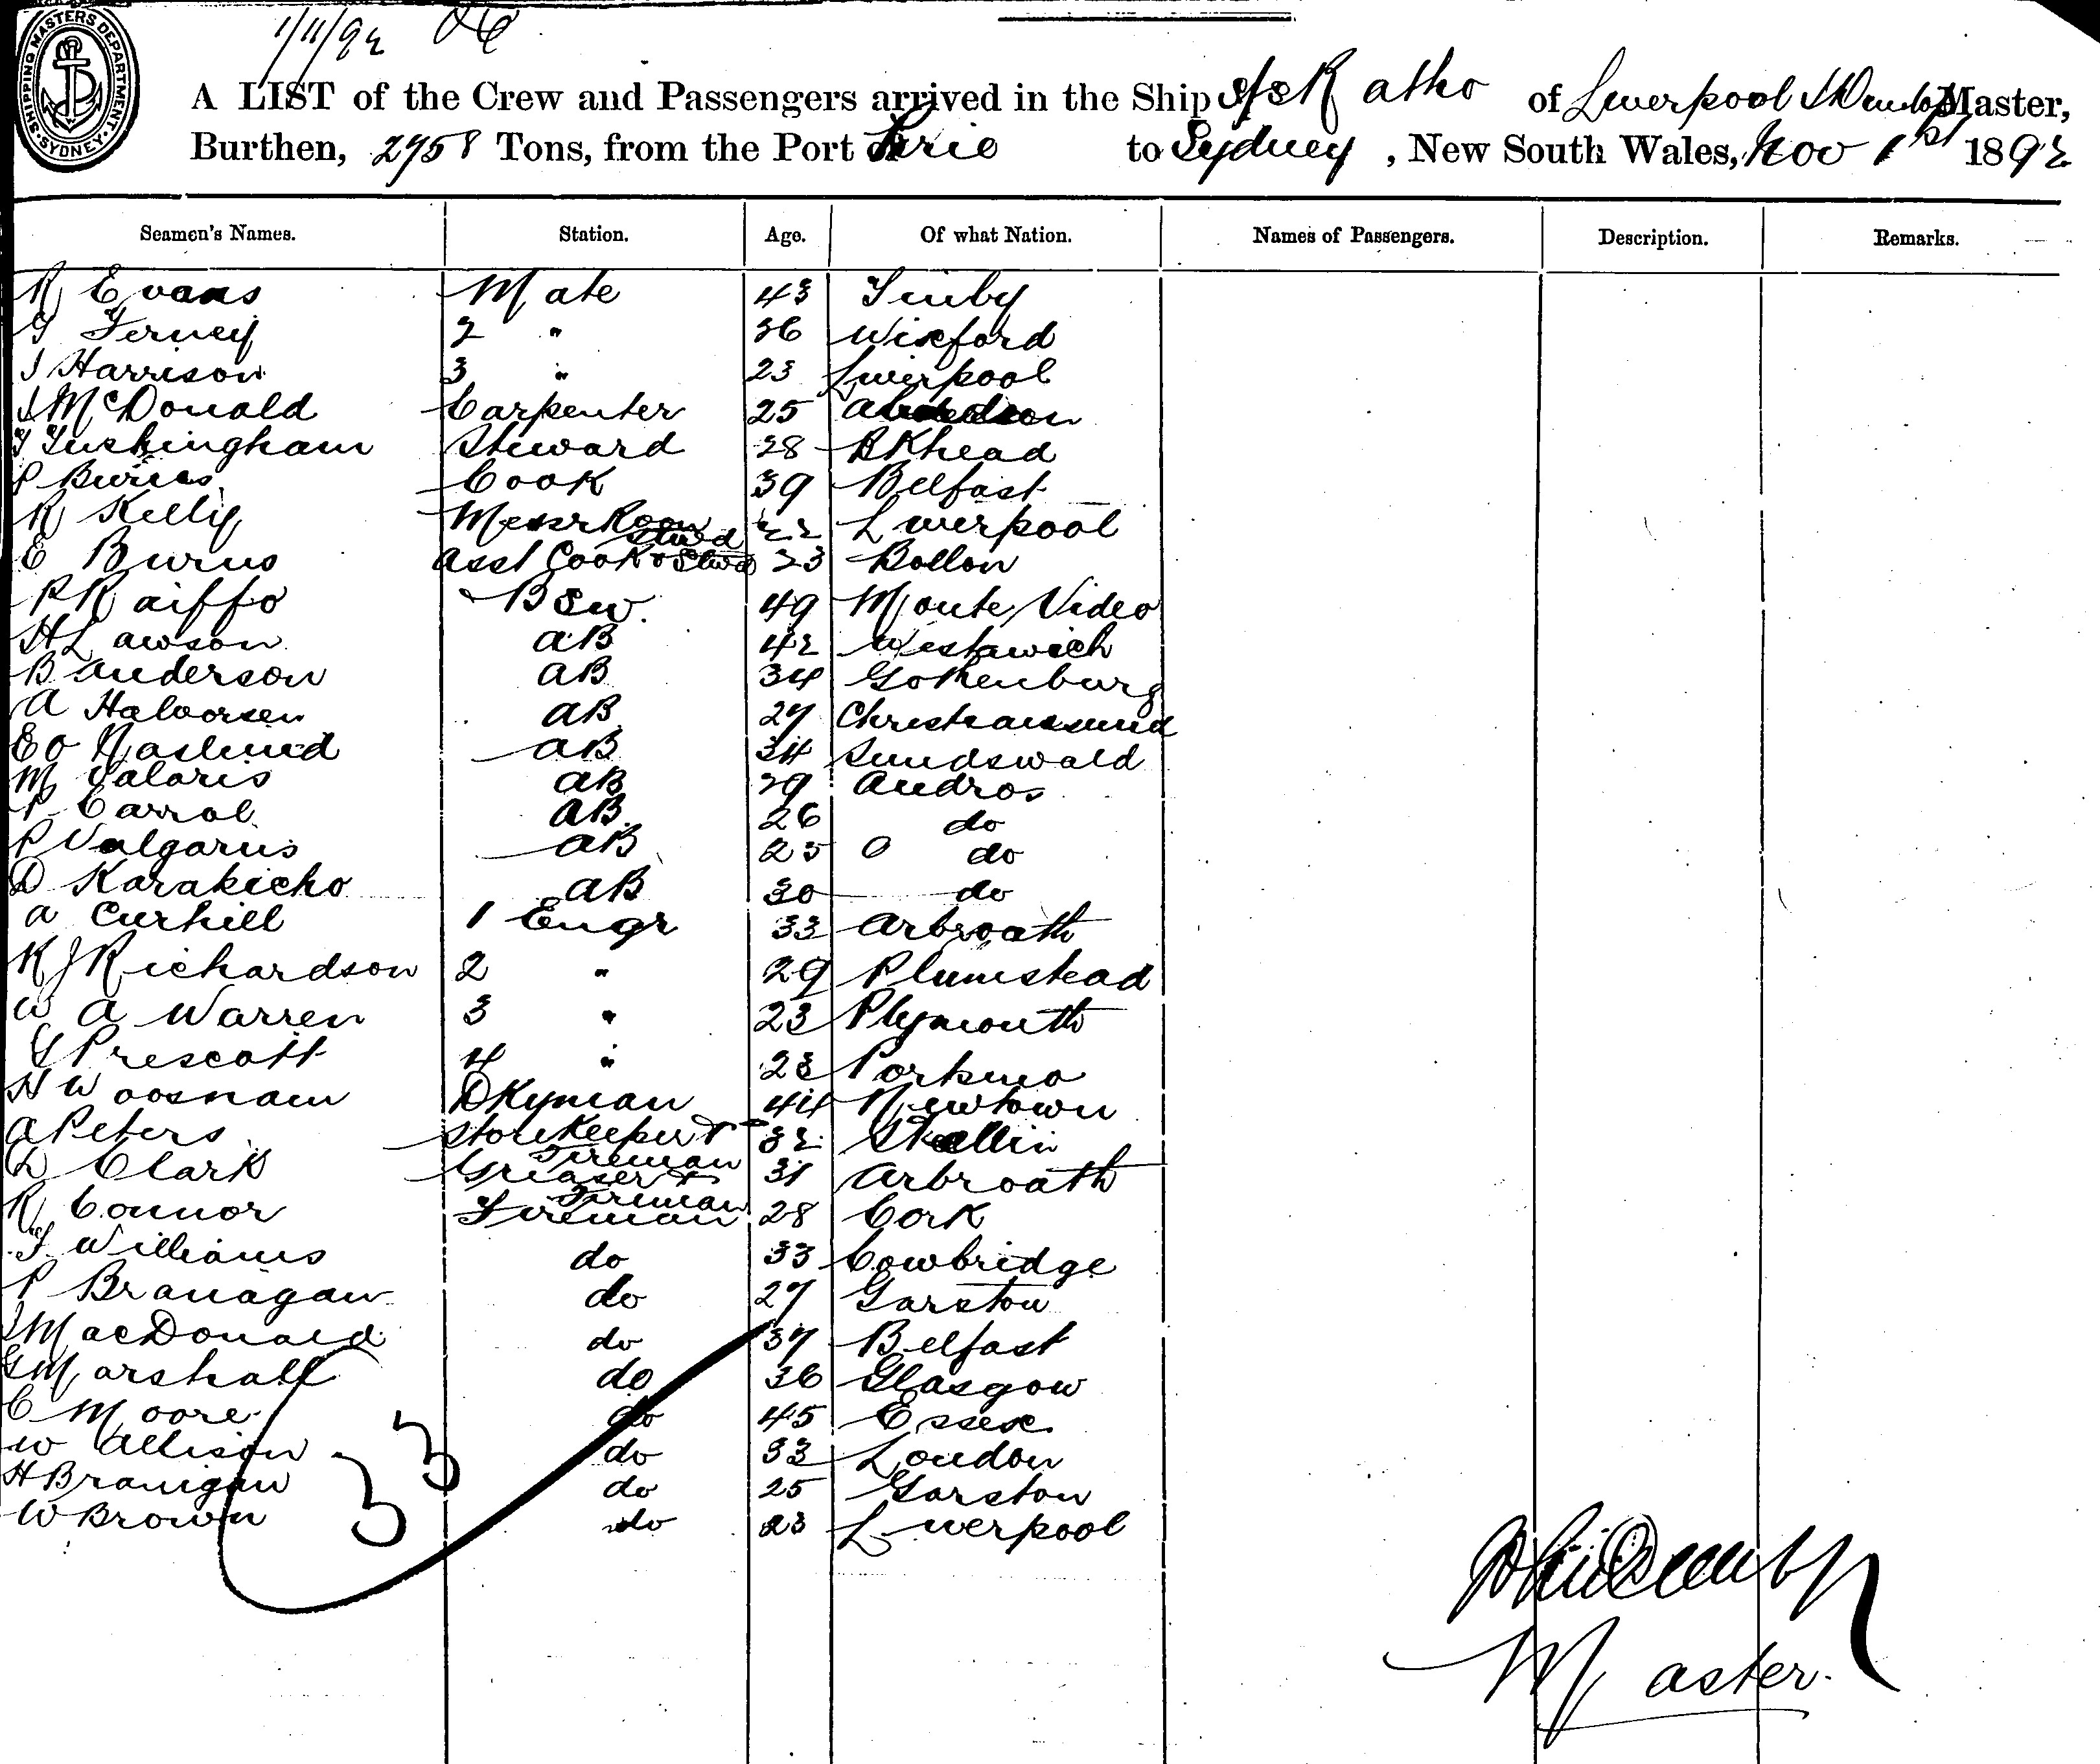 SHIPPING MASTERS DEPARTMENT. SYDNEY.
1/11/92
A LIST of the Crew and Passengers arrived in the Ship S/S Ratho of Liverpool Master,
Burthen, 2958 Tons, from the Port of Pirie to Sydney, New South Wales, Nov 1st 1892
Seamen's Names. Station. Age. Of what Nation. Names of Passengers. Description. Remarks.
R Evans Mate 43 Tinby
Ferney 2 " 36 Wixford
J Harrison 3 " 23 Liverpool
J McDonald Carpenter 25
T Tushingham Steward 28 BKhead
P Burns Cook 39 Belfast
R Kelly Messr Room Stwd 22 Liverpool
E Burns Asst Cook & Stwd 23 Bolton
P Raiffo BSw. 49 Monte Video
H Lawson AB 42 Westawich
B Anderson AB 34 Gothenburg
A Halvorsen AB 27 Christiansund
E O Naslund AB 34 Sundswald
M Valaris AB 29 Andros
P Carrol AB 26 do
P Valgaris AB 25 do
D Karakicho AB 30 do
A Curhill 1 Engr 33 Arbroath
R J Richardson 2 " 29 Plumstead
W A Warren 3 " 23 Plymouth
G Prescott 4 " 23 Portsmo
H Woosnam DKyman 44 Newtown
A Peters Storekeeper & Fireman 32 Stettin
D Clark Greaser & Fireman 31 Arbroath
R Connor Fireman 28 Cork
T Williams do 33 Cowbridge
P Branagan do 27 Garston
J MacDonald do 37 Belfast
G Marshall do 36 Glasgow
C Moore do 45 Essex
W Allison do 33 London
H Branigan do 25 Garston
W Brown do 23 Liverpool
33
Master.